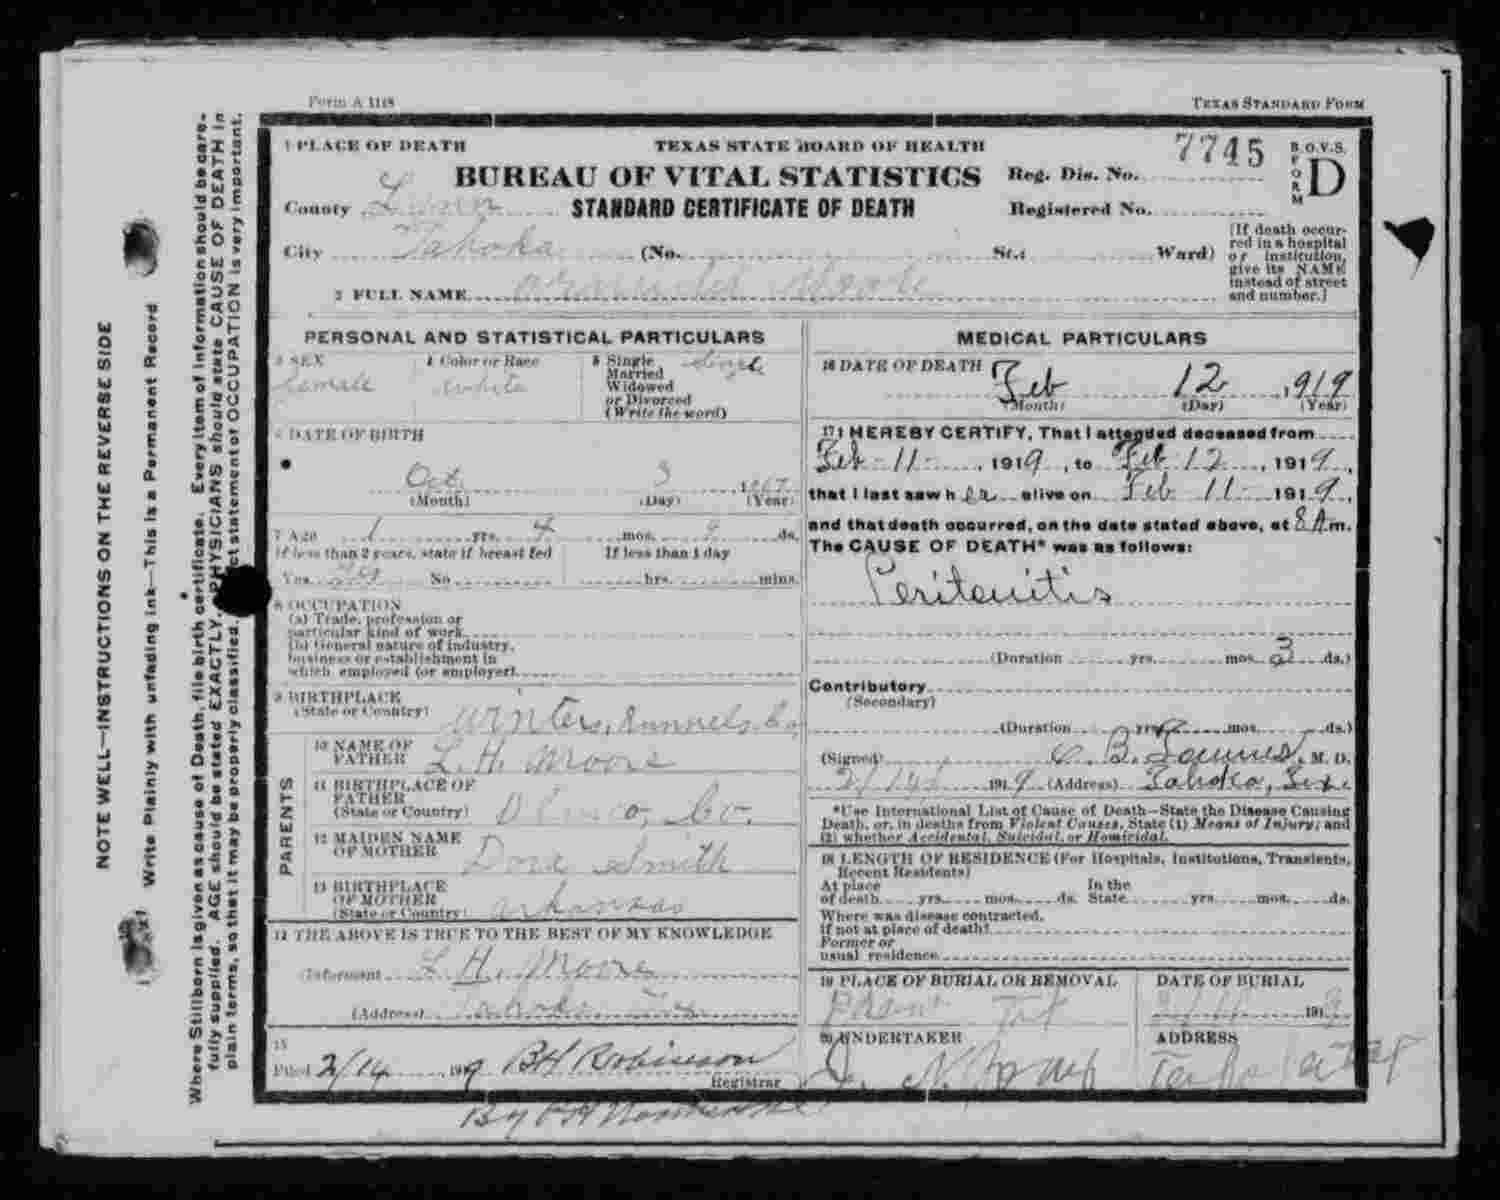 Form A 1118
TEXAS STANDARD FORM
1 PLACE OF DEATH
TEXAS STATE BOARD OF HEALTH
7745
BUREAU OF VITAL STATISTICS
Reg. Dis. No.
B.O.V.S.
FORM
D
County Lynn
STANDARD CERTIFICATE OF DEATH
Registered No.
City Tahoka (No. St.; Ward)
(If death occurred in a hospital or institution, give its NAME instead of street and number.)
2 FULL NAME Moore
PERSONAL AND STATISTICAL PARTICULARS
3 SEX
Female
4 Color or Race
White
5 Single
Married
Widowed
or Divorced
(Write the word)
Single
6 DATE OF BIRTH
Oct 3
(Month) (Day) (Year)
7 Age 1 yrs. 4 mos. 9 ds.
If less than 2 years, state if breast fed
Yes Yes No
If less than 1 day
hrs. mins.
8 OCCUPATION
(a) Trade, profession or
particular kind of work
(b) General nature of industry,
business or establishment in
which employed (or employer)
9 BIRTHPLACE
(State or Country) Winters, Runnels Co
PARENTS
10 NAME OF
FATHER L. H. Moore
11 BIRTHPLACE OF
FATHER
(State or Country) Co.
12 MAIDEN NAME
OF MOTHER Dora Smith
13 BIRTHPLACE
OF MOTHER
(State or Country) Arkansas
14 THE ABOVE IS TRUE TO THE BEST OF MY KNOWLEDGE
(Informant L. H. Moore
(Address) Tahoka Tex
15
Filed 2/14 1919 BH Robinson
Registrar
By
MEDICAL PARTICULARS
16 DATE OF DEATH Feb 12 1919
(Month) (Day) (Year)
17 I HEREBY CERTIFY, That I attended deceased from
Feb-11-, 1919, to Feb 12, 1919,
that I last saw h er alive on Feb 11- 1919,
and that death occurred, on the date stated above, at 8 A m.
The CAUSE OF DEATH* was as follows:
Peritonitis
(Duration yrs. mos. 3 ds.)
Contributory
(Secondary)
(Duration yrs. mos. ds.)
(Signed) B. M. D.
2/14 1919 (Address) Tahoka, Tex
*Use International List of Cause of Death—State the Disease Causing
Death, or, in deaths from Violent Causes, State (1) Means of Injury; and
(2) whether Accidental, Suicidal, or Homicidal.
18 LENGTH OF RESIDENCE (For Hospitals, Institutions, Transients,
Recent Residents)
At place
of death yrs. mos. ds.
In the
State yrs. mos. ds.
Where was disease contracted,
if not at place of death?
Former or
usual residence
19 PLACE OF BURIAL OR REMOVAL
DATE OF BURIAL
191
20 UNDERTAKER
ADDRESS
NOTE WELL—INSTRUCTIONS ON THE REVERSE SIDE
Write Plainly with unfading ink—This is a Permanent Record
Where Stillborn is given as cause of Death, file birth certificate. Every item of information should be care-
fully supplied. AGE should be stated EXACTLY. PHYSICIANS should state CAUSE OF DEATH in
plain terms, so that it may be properly classified. statement of OCCUPATION is very important.